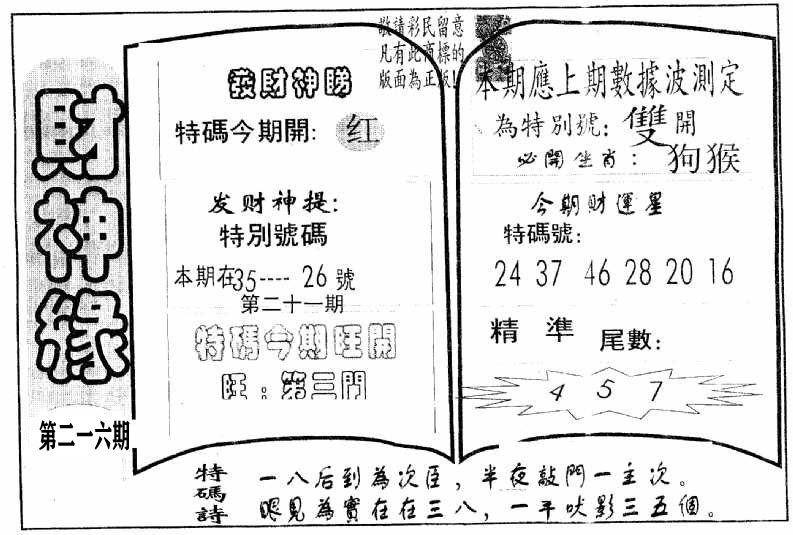 財神緣
第二一六期
敬請彩民留意
凡有此商標的
版面為正版!
發財神睇
特碼今期開: 红
发财神提:
特別號碼
本期在35----26號
第二十一期
特碼今期旺開
旺:第三門
本期應上期數據波測定
為特別號:雙開
必開生肖:狗猴
今期財運星
特碼號:
24 37 46 28 20 16
精準 尾數:
4 5 7
特碼詩
一八后到為次臣,半夜敲門一主次。
眼見為實在在三八,一平吠影三五個。